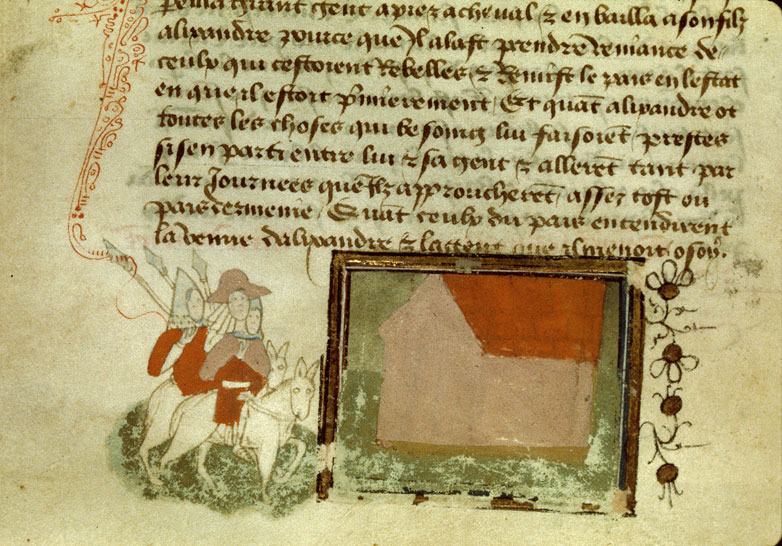 grant gent a pie z a cheual / z en bailla a son filz
alixandre pource quil alast prendre veniance de
ceulx qui cestoient Rebelles / z Remist le pais en lestat
en que il estoit premierement / Et quant alixandre ot
toutes les choses qui besoing lui faisoiet prestes
si sen parti entre lui z sa gent z allerent tant par
leur Journees quilz approucherent assez tost ou
pais dermenie / Quāt ceulx du pais entendirent
la venue dalixandre z la gent que il menoit